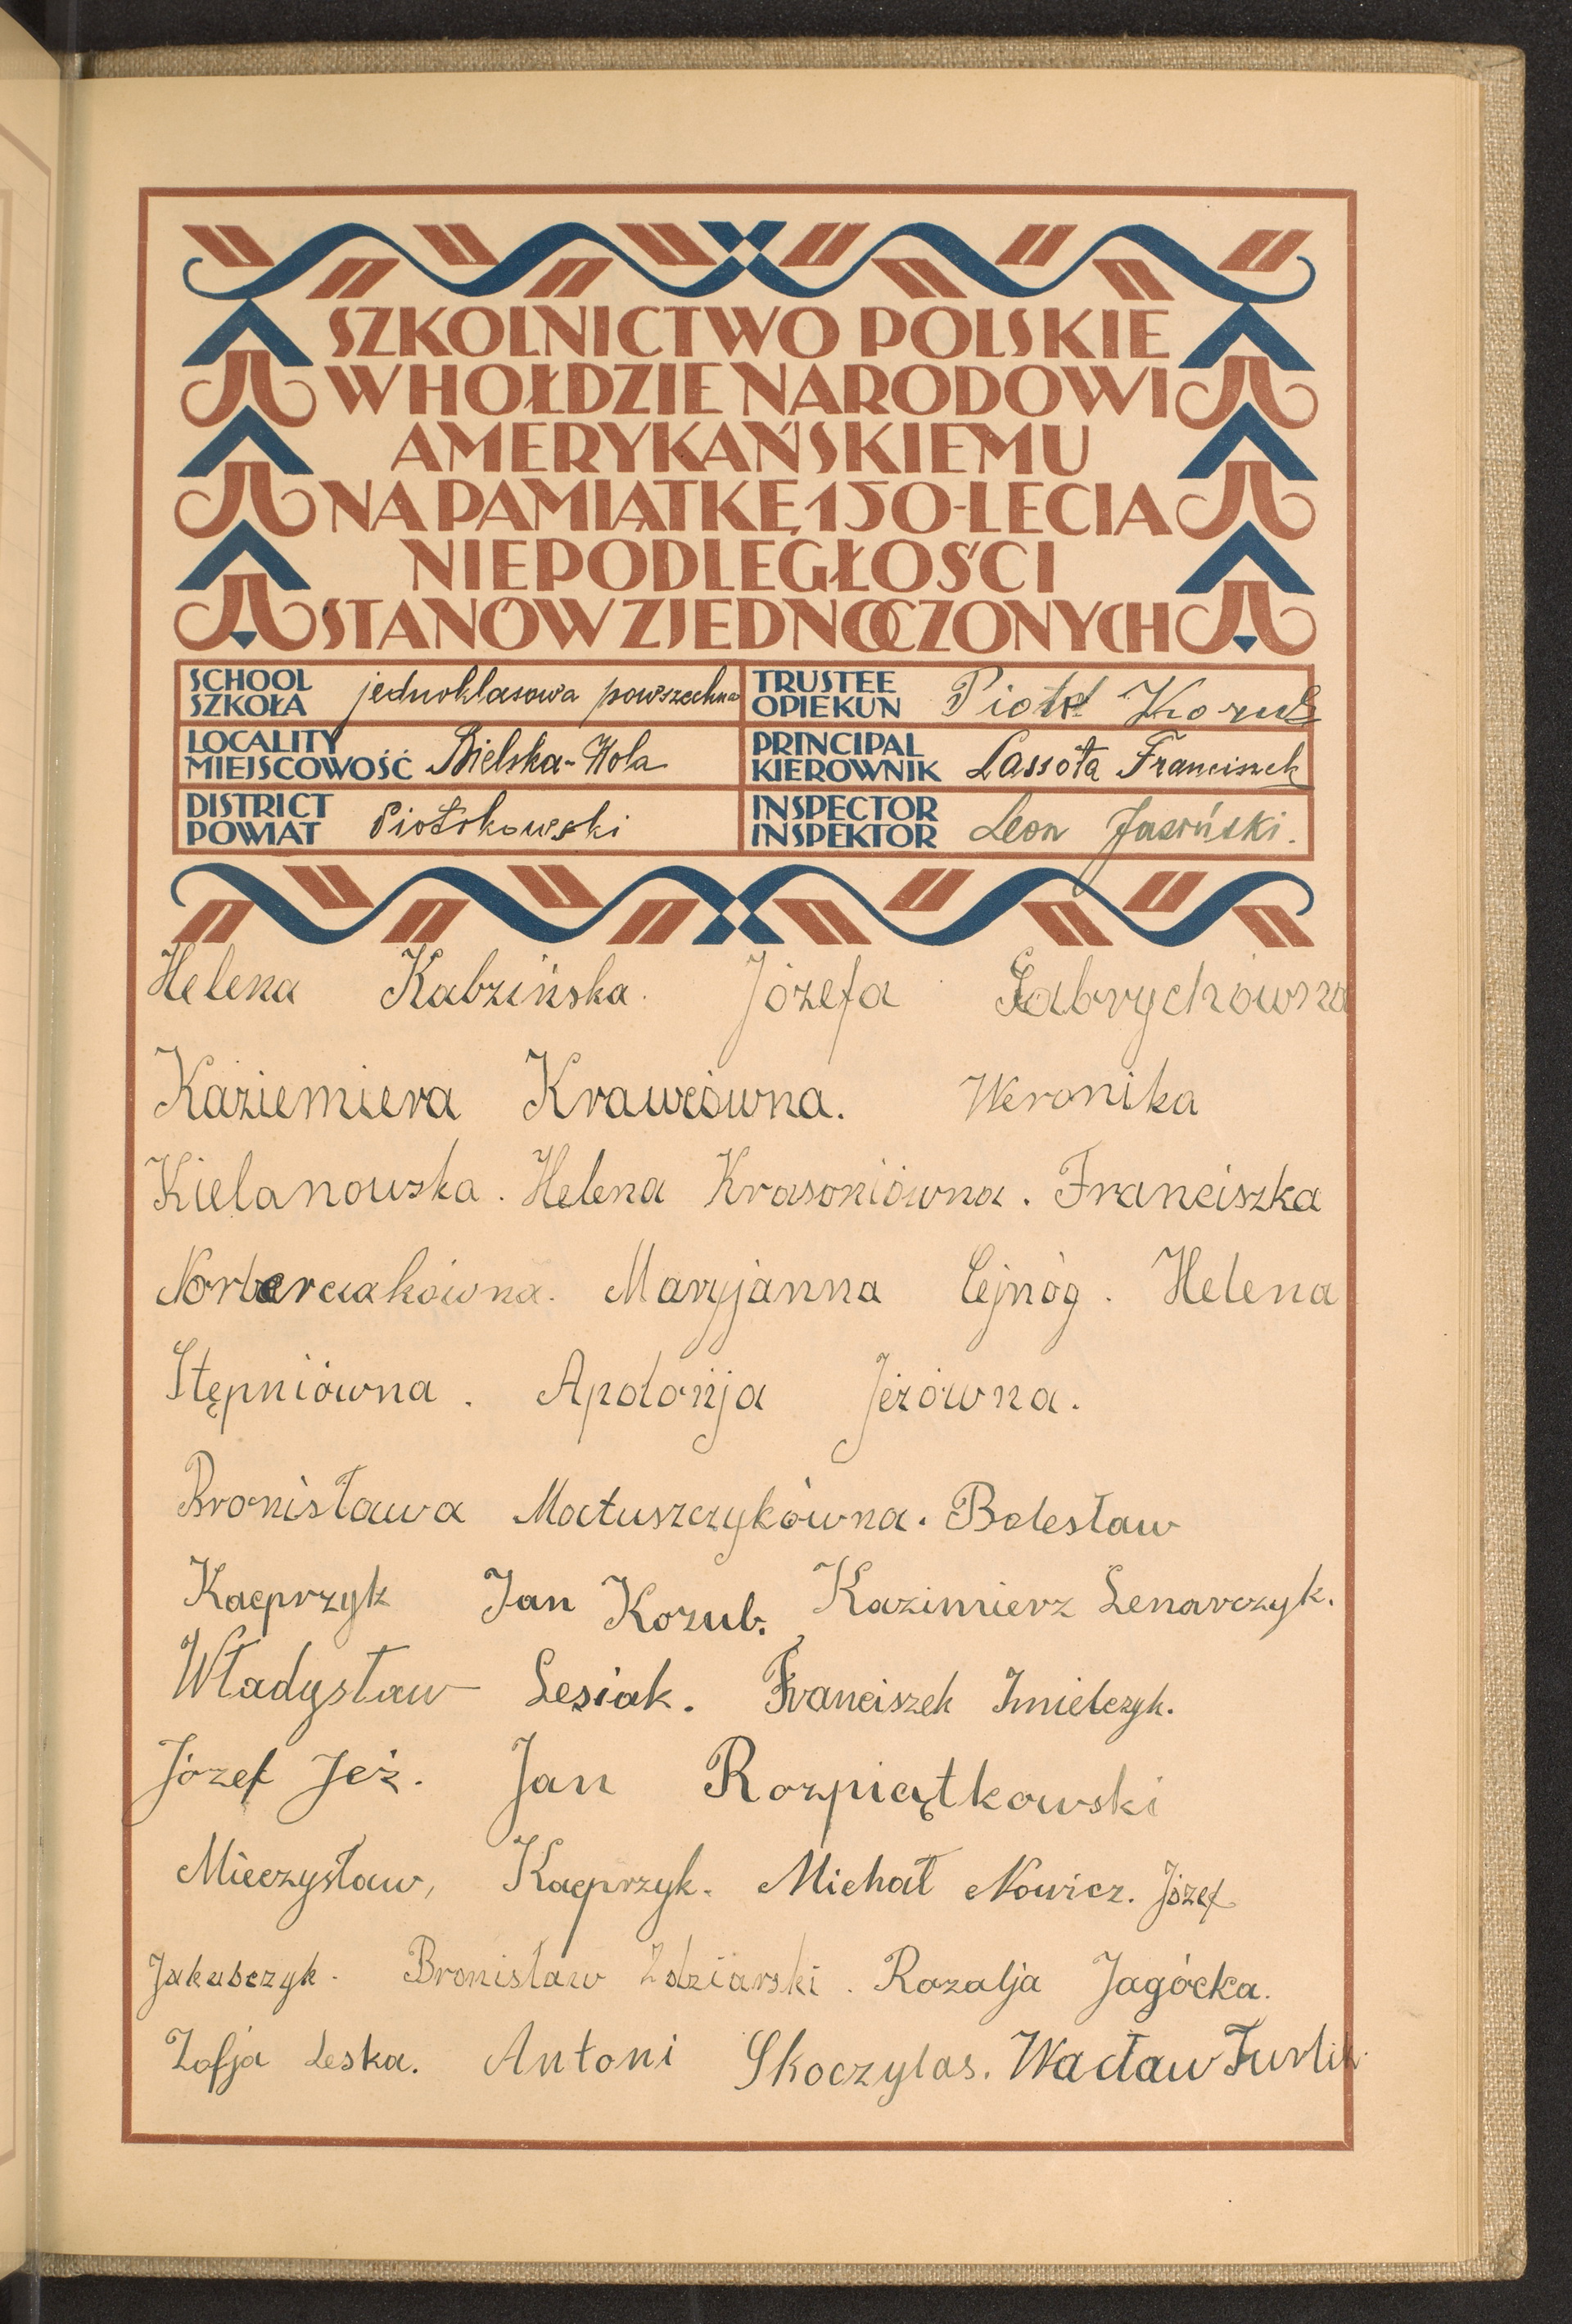 SZKOLNICTWO POLSKIE
W HOŁDZIE NARODOWI
AMERYKAŃSKIEMU
NA PAMIĄTKĘ 150-LECIA
NIEPODLEGŁOŚCI
STANÓW ZJEDNOCZONYCH
SCHOOL
SZKOŁA jednoklasowa powszechna
TRUSTEE
OPIEKUN Piotr Korub
LOCALITY
MIEJSCOWOŚĆ Bielska-Wola
PRINCIPAL
KIEROWNIK Lassota Franciszek
DISTRICT
POWIAT Piotrkowski
INSPECTOR
INSPEKTOR Leon Jasiński.
Helena Kabzińska. Józefa Gabrychówna
Kaziemiera Krawcówna. Weronika
Kielanowska. Helena Krasoniówna. Franciszka
Norberciakówna. Maryjanna Cejnóg. Helena
Stępniówna. Apolonja Jeżówna.
Bronisława Matuszczykówna. Bolesław
Kacprzyk Jan Kozub. Kazimierz Lenarczyk.
Władysław Lesiak. Franciszek Imielczyk.
Józef Jeż. Jan Rozpiątkowski
Mieczysław, Kacprzyk. Michał Nowicz. Józef
Jakubczyk. Bronisław Zdziarski. Rozalja Jagócka.
Zofja Leska. Antoni Skoczylas. Wacław